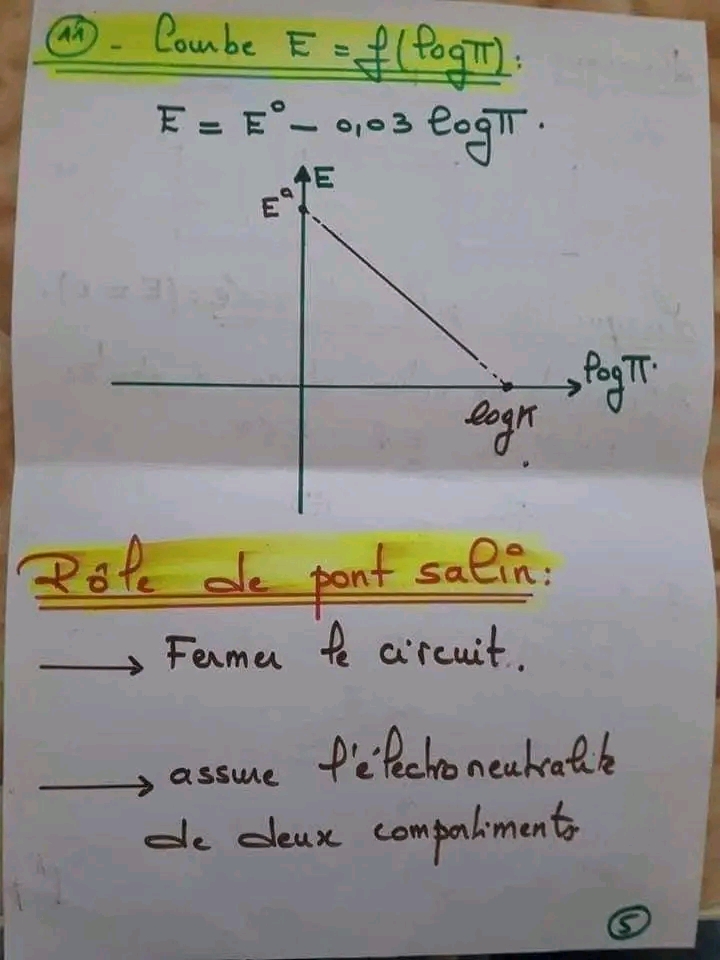 11 - Courbe E = f(logπ):
E = E° - 0,03 logπ.
E
E°
logπ.
logK
Rôle de pont salin:
→ Fermer le circuit.
→ assure l'électroneutralité
de deux compartiments
5